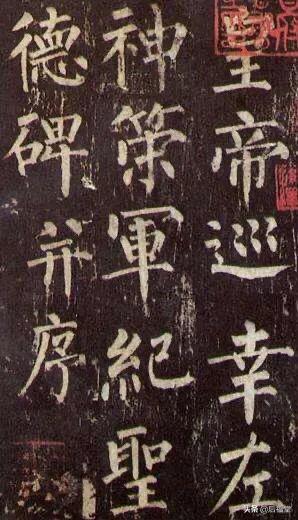 皇帝巡幸左
神策軍紀聖
德碑并序
头条 @后福堂